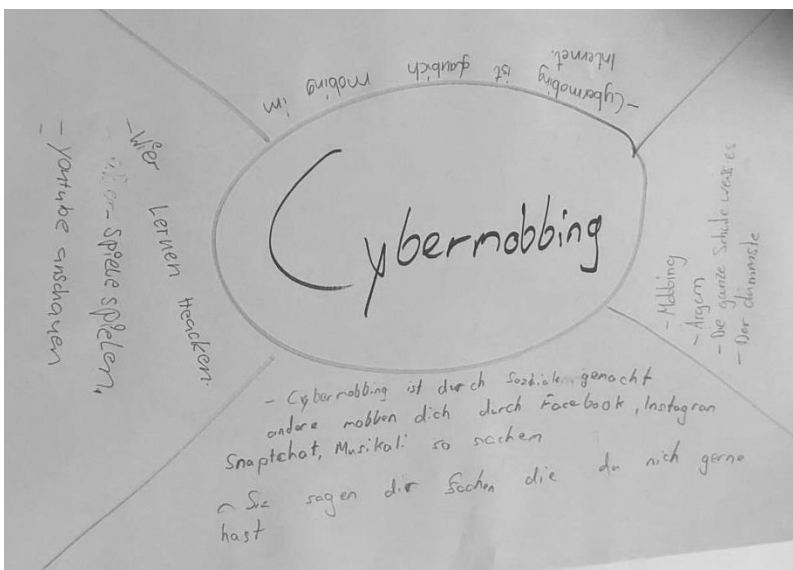 Cybermobbing
– Cybermobing ist glaubich mobing im
Internet.
– Mobbing
– Ärgern
– Die ganze Schule weis es
– Der dümmste
– Cybermobbing ist durch gemacht
andere mobben dich durch Facebook, Instagran
Snaptchat, Musikali so sachen
– Sie sagen dir Sachen die du nich gerne
hast
– Wier Lernen Heacken.
– Spiele spielen,
– Youtube anschauen
–